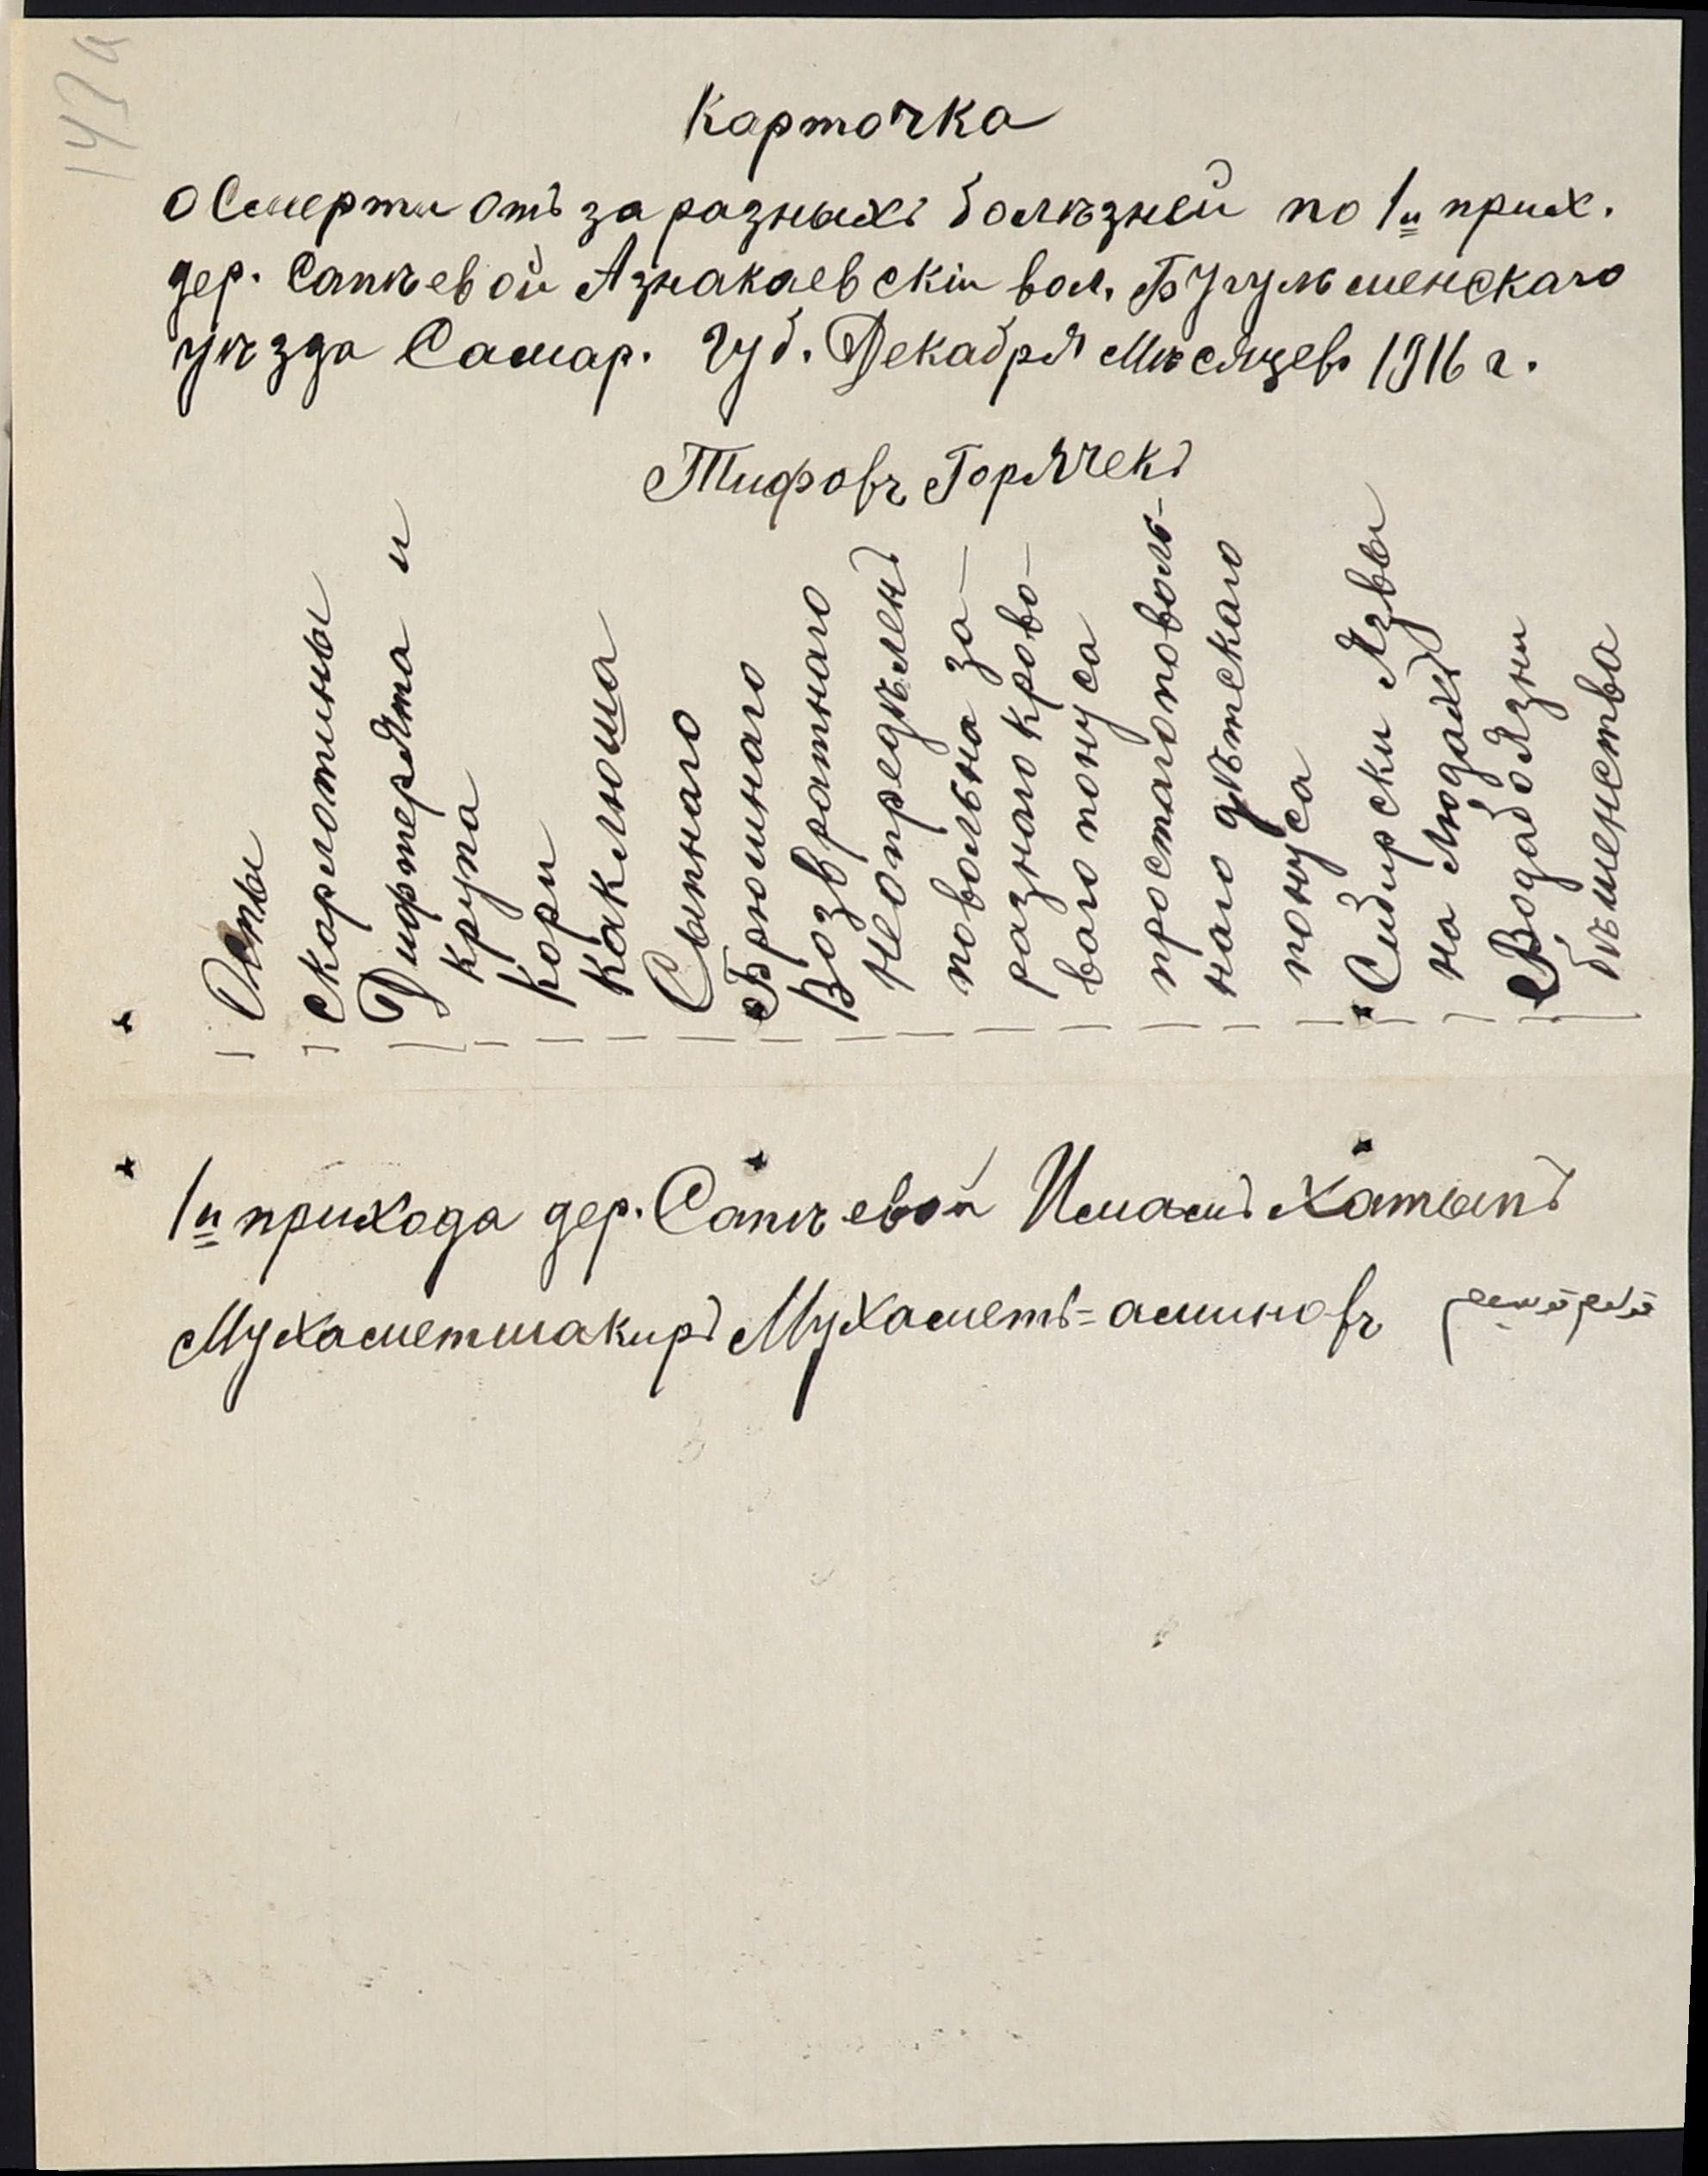 147а
Карточка
о Смерти отъ заразныхъ болѣзней по 1й прих.
дер. Сапѣевой Азнакаевскiй вол. Бугульменскаго
уѣзда Самар. Губ. Декабря Мѣсяцевъ 1916 г.
Тифовъ Горячекъ
Оспы
Скарлотины
Дифтерята и
крупа
Кори
Каклюша
Сыпнаго
Брюшнаго
Возвратнаго
Неопредѣлен
повольна за-
разнаго крово-
ваго понуса
простаго поволь-
наго дѣтскаго
понуса
Сибирски Язвы
на Людахъ
Водабоязни
бѣшенства
1й прихода дер. Сапѣевой Имамъ Хатыпъ
Мухаметшакиръ Мухаметъ=аминовъ